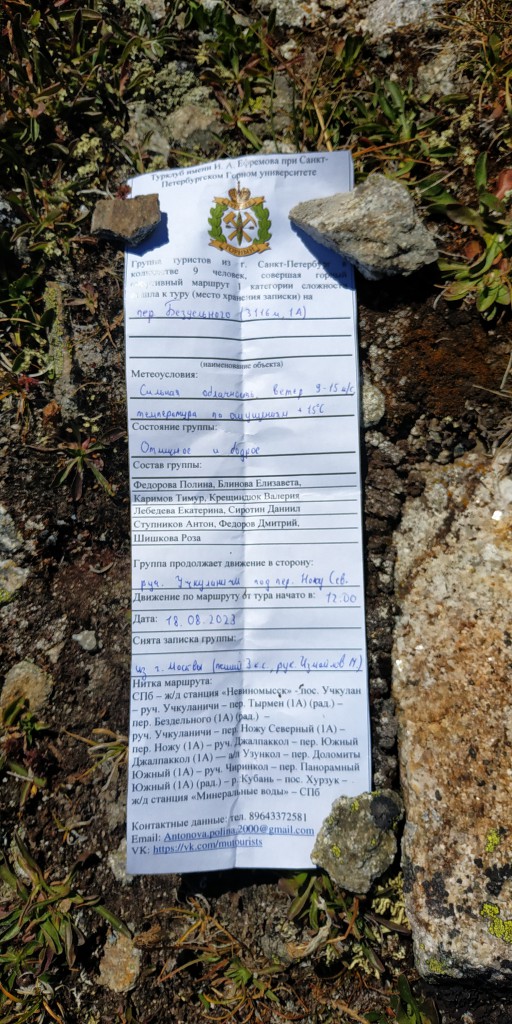 Турклуб имени И. А. Ефремова при Санкт-
Петербургском Горном университете
Группа туристов из г. Санкт-Петербург в
количестве 9 человек, совершая горный
спортивный маршрут 1 категории сложности
вышла к туру (место хранения записки) на
пер. Бездельного (3116 м, 1А)
(наименование объекта)
Метеоусловия:
Сильная облачность, ветер 9-15 м/с
температура по ощущениям +15°С
Состояние группы:
Отличное и бодрое
Состав группы:
Федорова Полина, Блинова Елизавета,
Каримов Тимур, Крещиндюк Валерия
Лебедева Екатерина, Сиротин Даниил
Ступников Антон, Федоров Дмитрий,
Шишкова Роза
Группа продолжает движение в сторону:
руч. Учкуланичи под пер. Ножу Сев.
Движение по маршруту от тура начато в: 12:00
Дата: 18.08.2023
Снята записка группы:
из г. Москвы 3 к.с., рук. Измайлов М)
Нитка маршрута:
СПб – ж/д станция «Невиномысск» - пос. Учкулан
– руч. Учкуланичи – пер. Тырмен (1А) (рад.) –
пер. Бездельного (1А) (рад.) –
руч. Учкуланичи – пер. Ножу Северный (1А) –
пер. Ножу (1А) – руч. Джалпаккол – пер. Южный
Джалпаккол (1А) — а/л Узункол – пер. Доломиты
Южный (1А) – руч. Чиринкол – пер. Панорамный
Южный (1А) (рад.) – р. Кубань – пос. Хурзук –
ж/д станция «Минеральные воды» – СПб
Контактные данные: тел. 89643372581
Email: Antonova.polina.2000@gmail.com
VK: https://vk.com/motourists